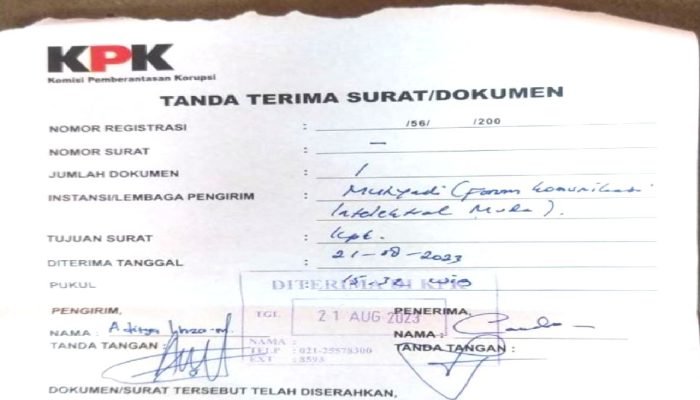 KPK
Komisi Pemberantasan Korupsi
TANDA TERIMA SURAT/DOKUMEN
NOMOR REGISTRASI : /56/ /200
NOMOR SURAT : —
JUMLAH DOKUMEN : 1
INSTANSI/LEMBAGA PENGIRIM : (Forum Komunikasi
Intelektual Muda).
TUJUAN SURAT : KPK.
DITERIMA TANGGAL : 21-08-2023
PUKUL : 15.32 WIB
DITERIMA DI KPK
TGL 21 AUG 2023
NAMA :
TELP : 021-25578300
EXT : 8595
PENGIRIM,
NAMA : Aditya
TANDA TANGAN :
PENERIMA,
NAMA :
TANDA TANGAN :
DOKUMEN/SURAT TERSEBUT TELAH DISERAHKAN,